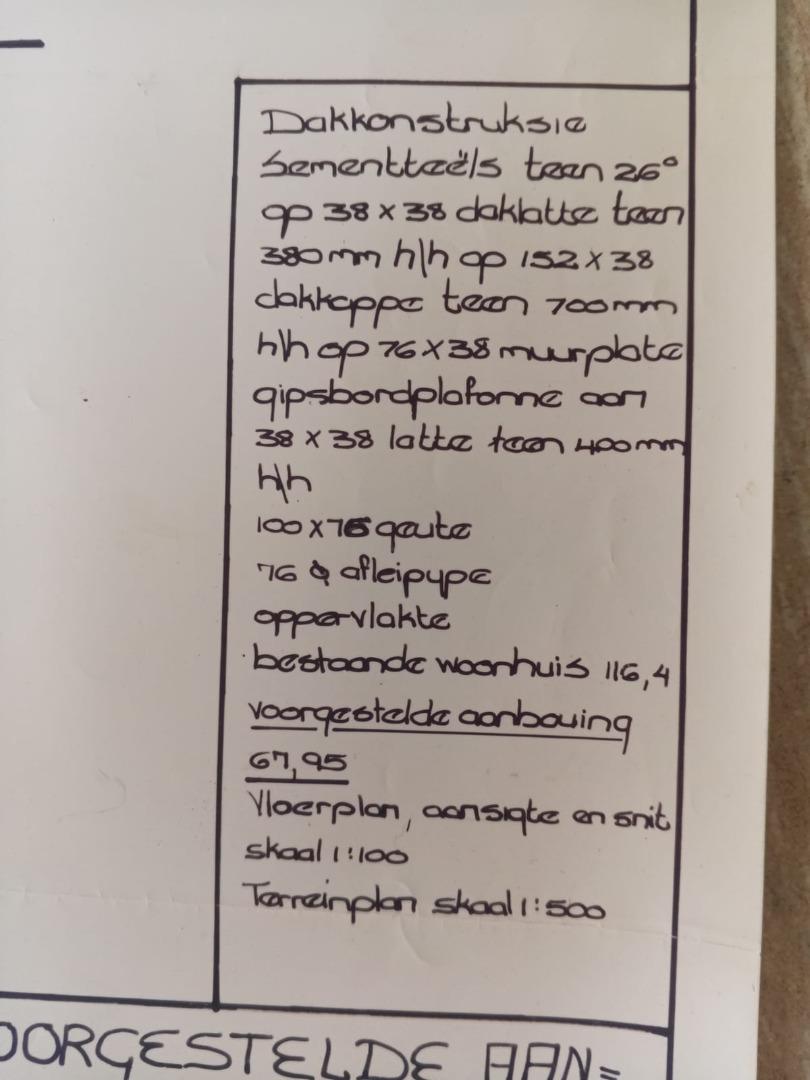 Dakkonstruksie
Sementteëls teen 26°
op 38 x 38 daklatte teen
380mm h/h op 152 x 38
dakkappe teen 700mm
h/h op 76 x 38 muurplate
gipsbordplafonne aan
38 x 38 latte teen 400mm
h/h
100 x 76 geute
76 ϕ afleipype
oppervlakte
bestaande woonhuis 116,4
voorgestelde aanbouing
67,95
Vloerplan, aansigte en snit
skaal 1:100
Terreinplan skaal 1:500
OORGESTELDE AAN=